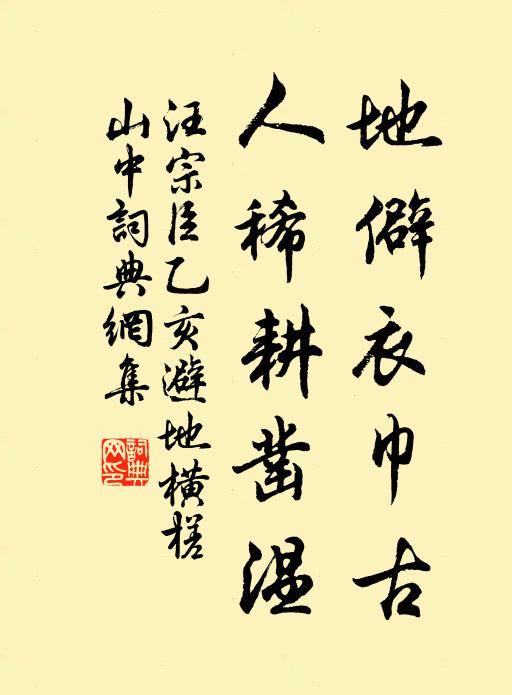 地僻衣巾古
人稀耕凿温
汪宗臣乙亥避地横槎
山中詞典網集
詞典网印